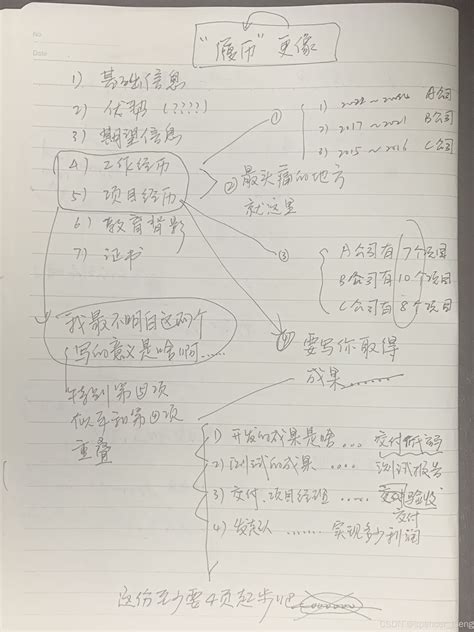 "履历" 更像
1) 基础信息
2) 优势 (????)
3) 期望信息
4) 工作经历
5) 项目经历
6) 教育背影
7) 证书
①
1) 2022 ~ A公司
2) 2017 ~ 2021 B公司
3) 2015 ~ 2016 C公司
② 最头痛的地方
就这里
③
A公司有 7个项目
B公司有 10个项目
C公司有 8个项目
我最不明白这两个
写的意义是啥啊……
特别第⑤项
似乎和第④项
重叠
要写你取得
成果……
1) 开发的成果是啥 … 交付
2) 测试的成果 …. 测试报告
3) 交付.项目经理 ….. 验收
交付
4) ……. 实现多少利润
这份至少要4页起步吧